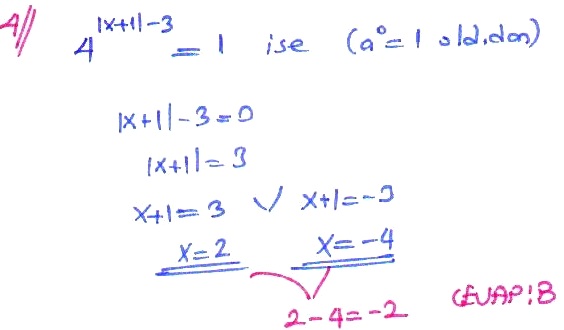 4// 4^|x+1|-3 = 1 ise (a⁰=1 old.dan)
|x+1|-3=0
|x+1|=3
x+1=3 ∨ x+1=-3
x=2 x=-4
2-4=-2 CEVAP:B